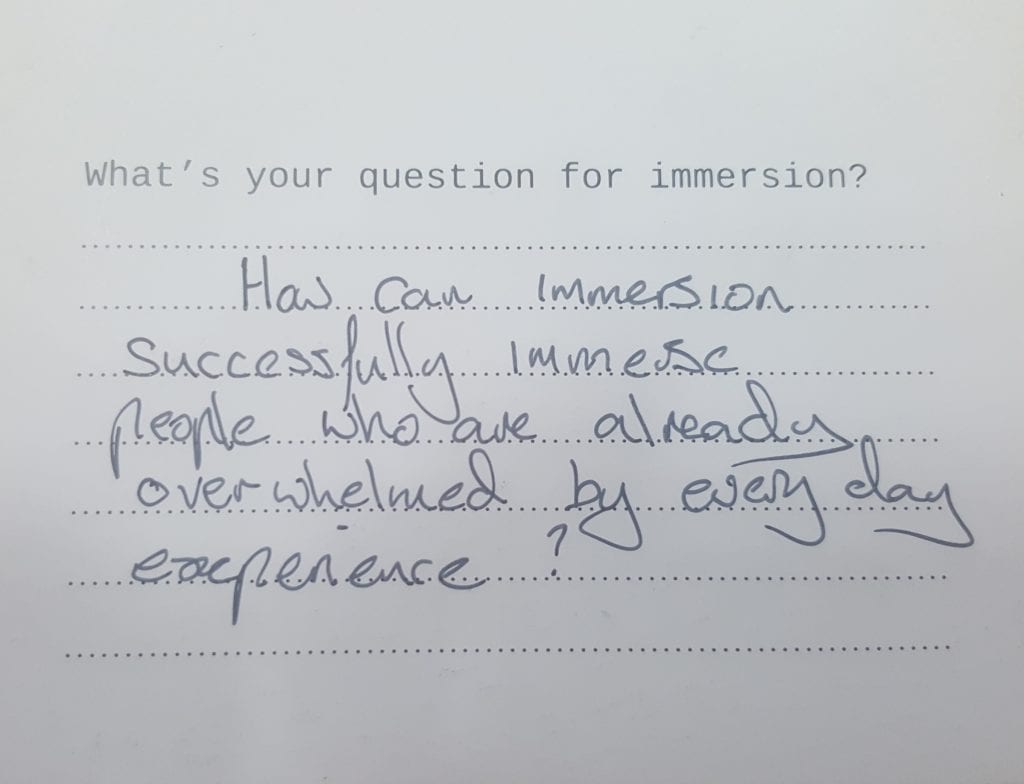 What's your question for immersion?
How can immersion
successfully immerse
people who are already
overwhelmed by every day
experience ?